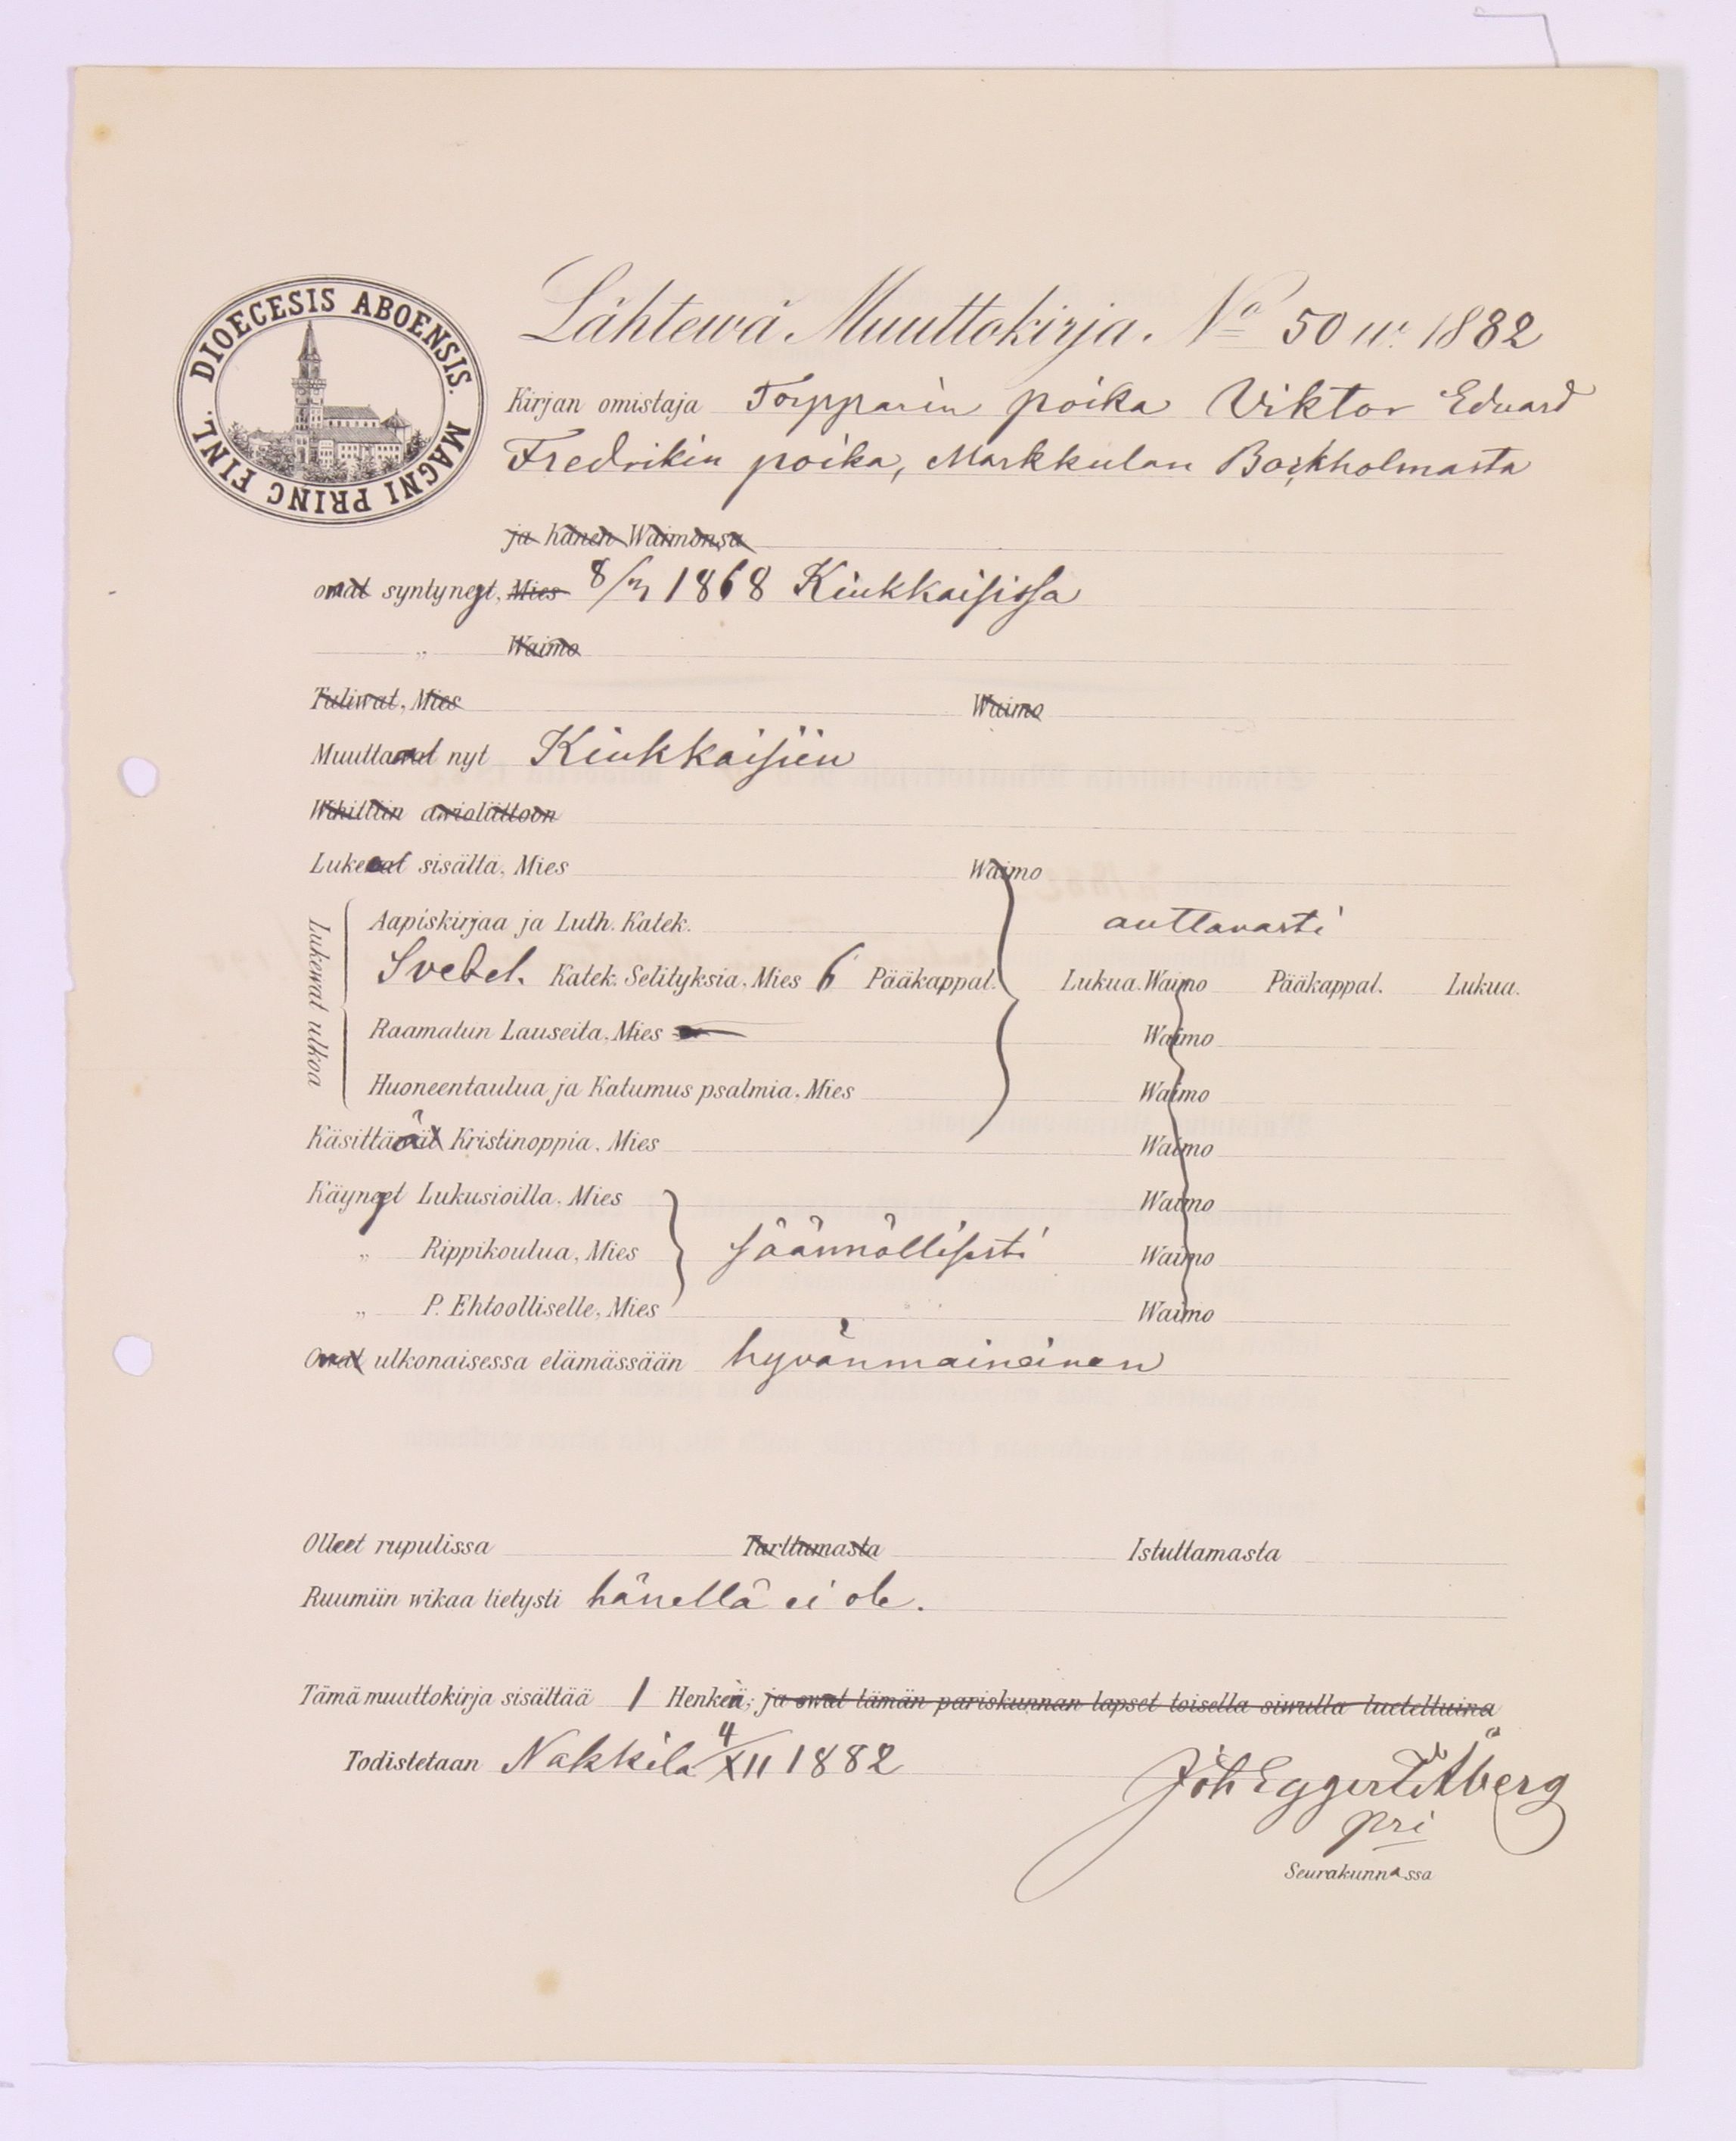 DIOECESIS ABOENSIS. MAGNI PRINC FINL.
Lähtewä Muuttokirja. No 50 1882
Kirjan omistaja Torpparin poika Viktor Eduard
Fredrikin poika, Markkulan Borkholmasta
ja hänen Waimonsa
owat syntynyt, Mies 8/3 1868 Kiukkaisissa
„ Waimo
Tuliwat, Mies Waimo
Muuttawat nyt Kiukkaisiin
Wihittiin awioliittoon
Lukewat sisältä, Mies Waimo
Lukewat ulkoa
Aapiskirjaa ja Luth. Katek. auttavasti
Svebel. Katek. Selityksiä, Mies 6 Pääkappal. Lukua. Waimo Pääkappal. Lukua.
Raamatun Lauseita, Mies Waimo
Huoneentaulua ja Katumus psalmia, Mies Waimo
Käsittää Kristinoppia, Mies Waimo
Käynyt Lukusioilla, Mies Waimo
„ Rippikoulua, Mies säännöllisesti Waimo
„ P. Ehtoolliselle, Mies Waimo
Owat ulkonaisessa elämässään hyvänmaineinen
Olleet rupulissa Tarttumasta Istuttamasta
Ruumiin wikaa tietysti hänellä ei ole.
Tämä muuttokirja sisältää 1 Henken; ja owat tämän pariskunnan lapset toisella siwulla lueteltuina
Todistetaan Nakkila 4/XII 1882
Joh Eggert Åberg
pri
Seurakunnassa